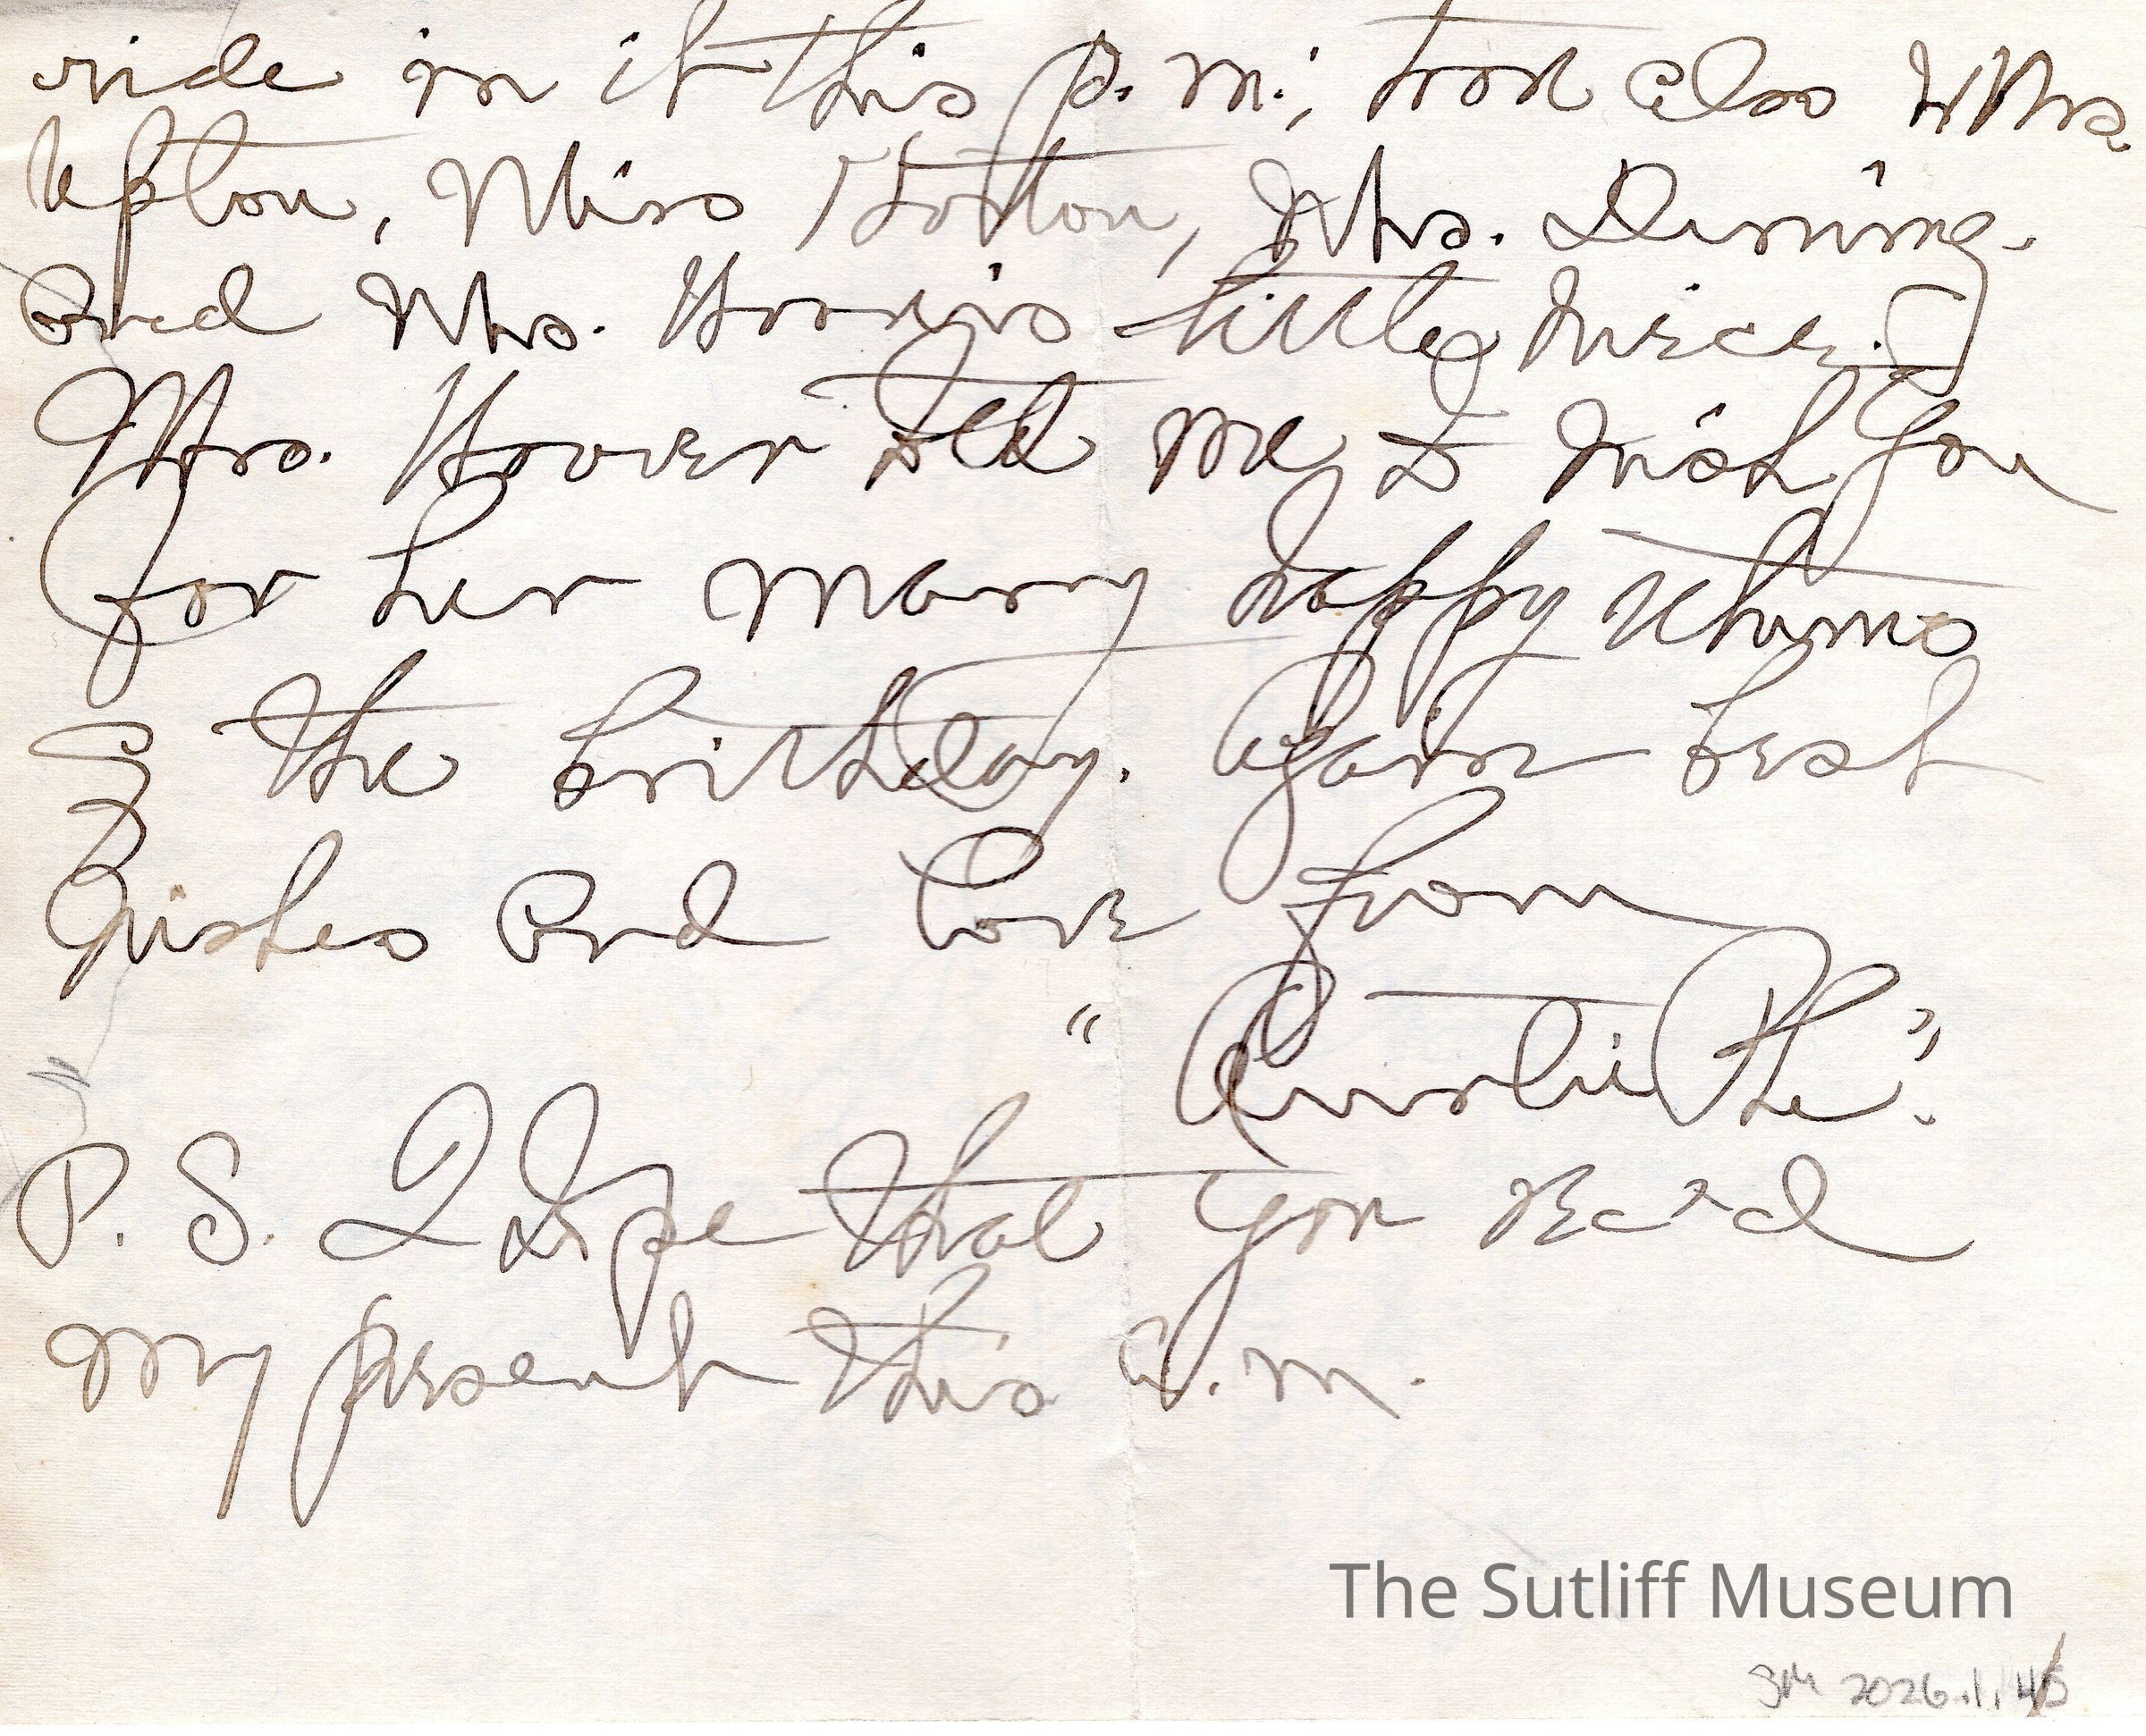 ride in it this p. m., took also Mrs.
Upton, Miss Horton, Mrs. Deming
and Mrs. Hoover's little niece.
Mrs. Hoover told me to wish you
for her many happy returns
of the birthday. Again best
wishes and love from
"Auntie Phe".
P. S. I hope that you rec'd
my present this a. m.
The Sutliff Museum
SM 2026.1.45